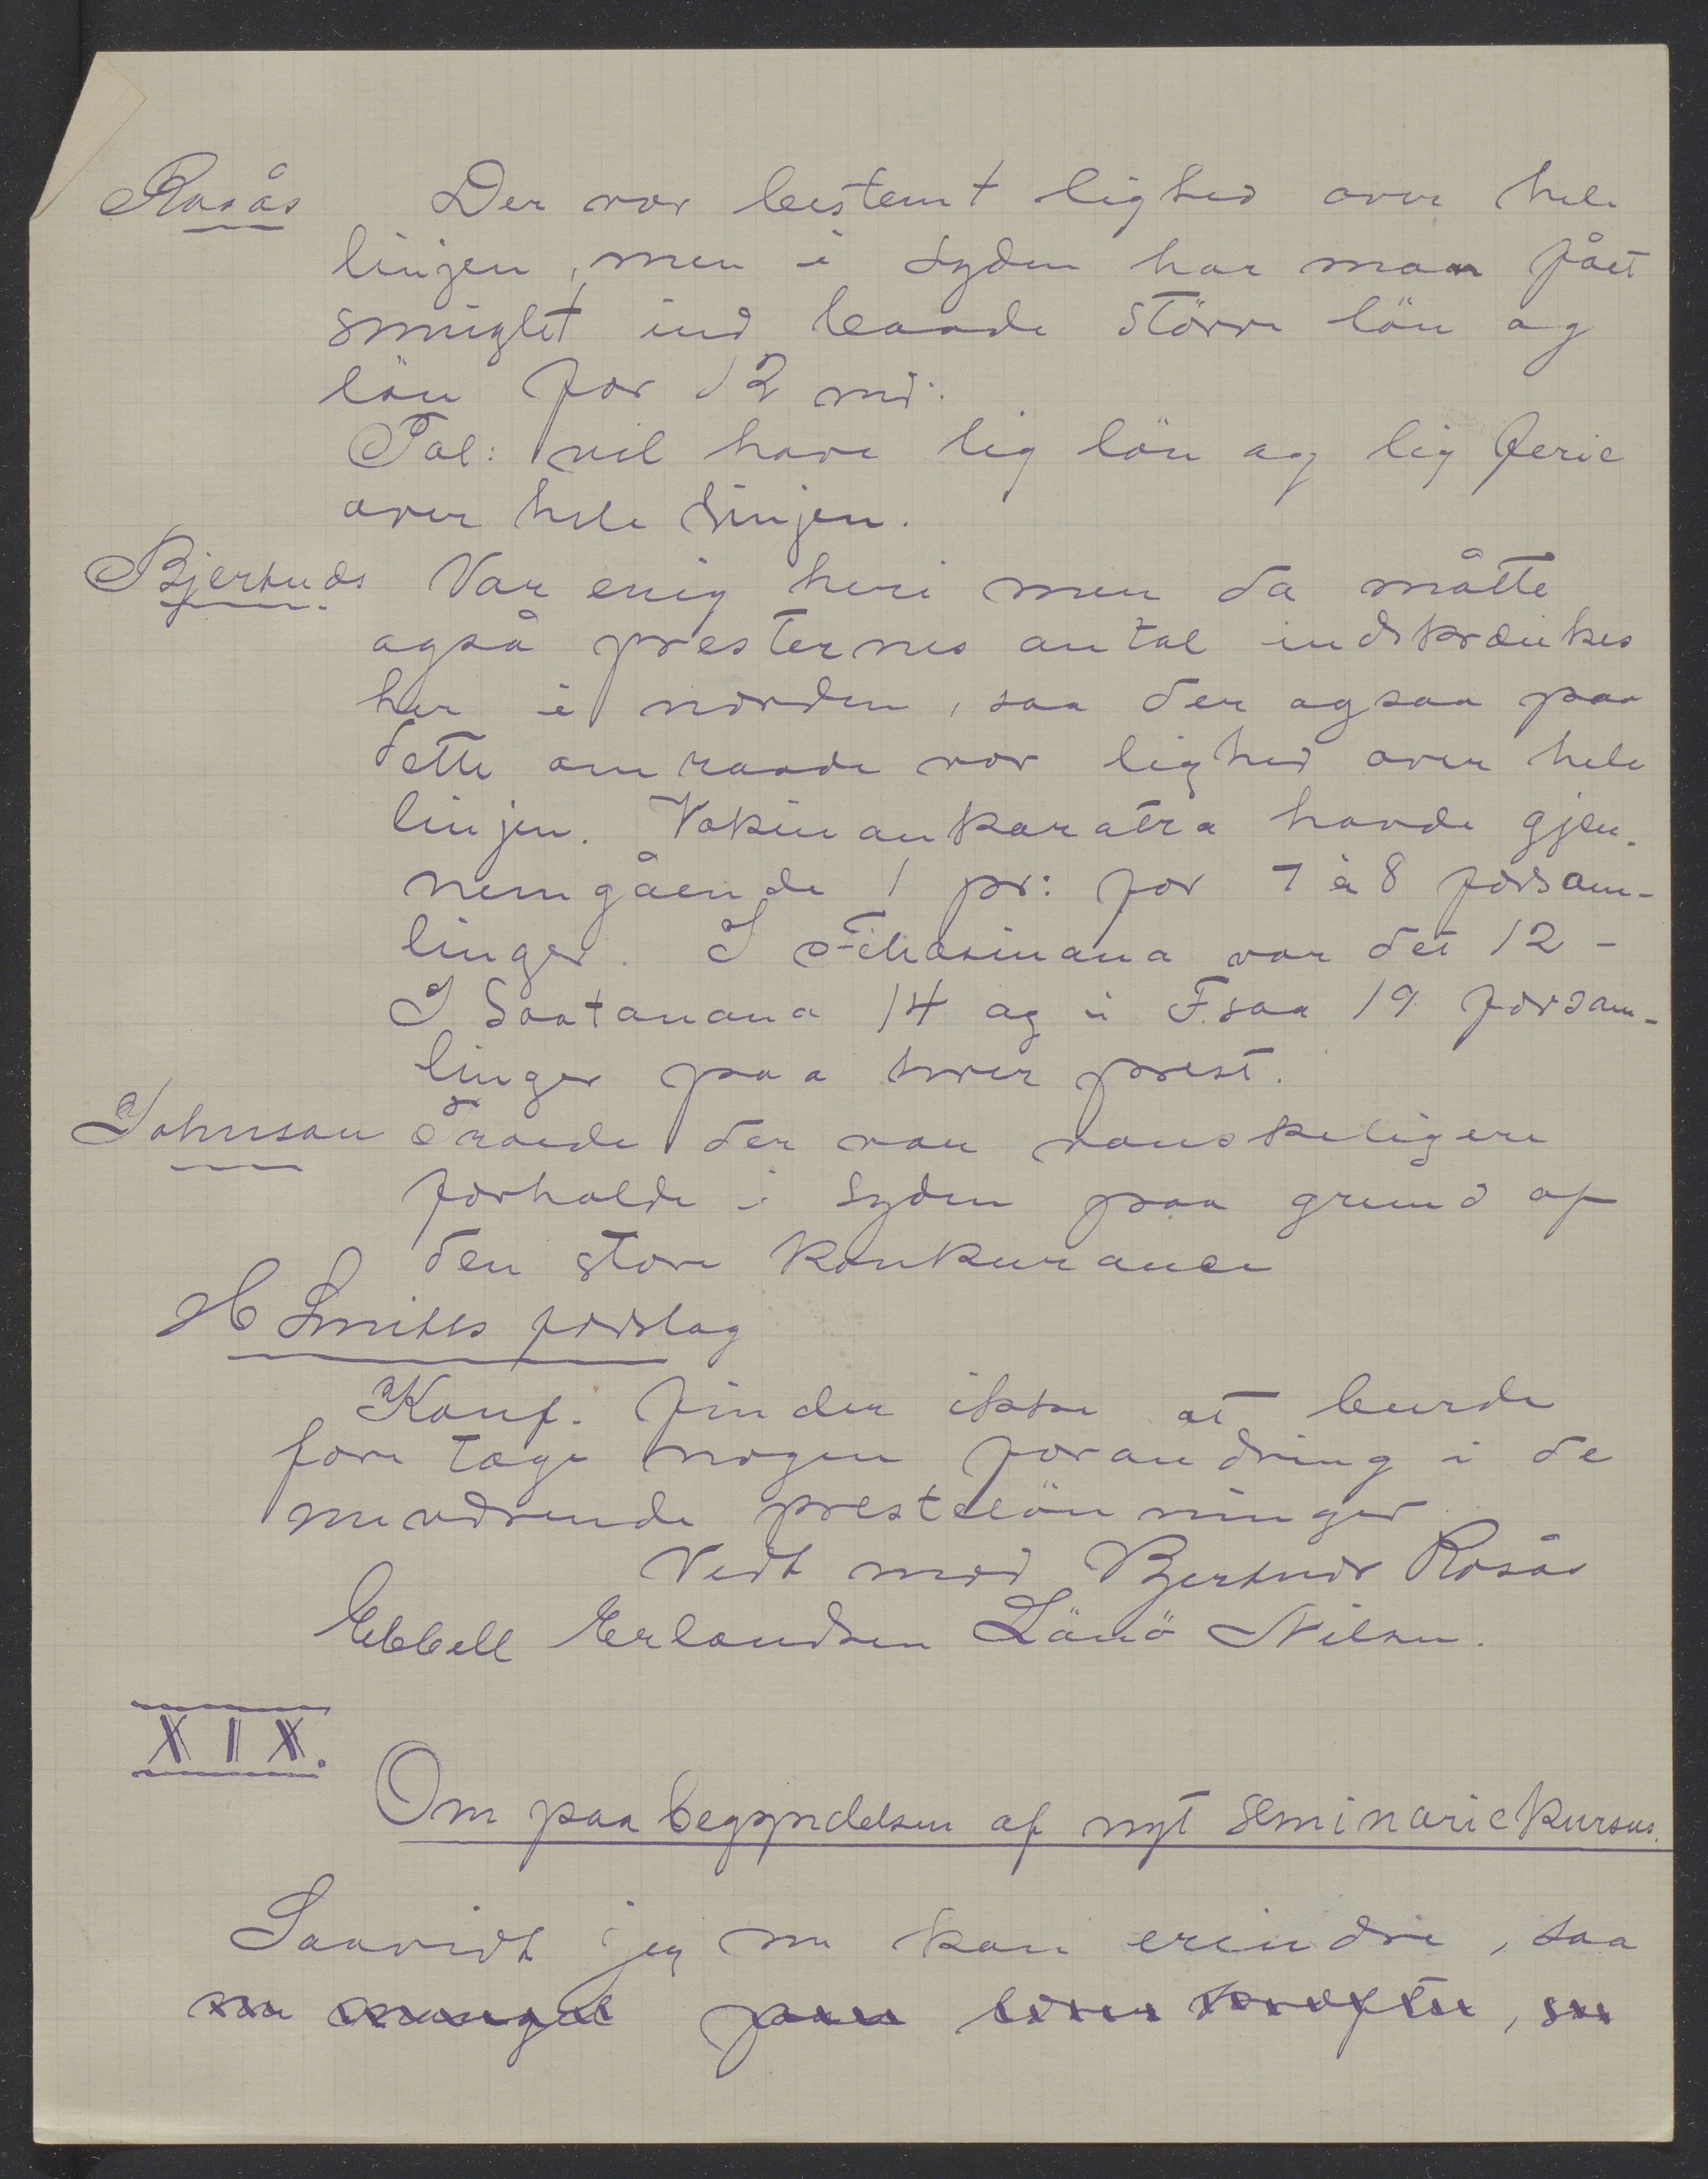 Rosås Der var bestemt lighed over hele
linjen, men i Syden har man fået
smuglet ind baade större lön og
lön for 12 md.
Tal: vil have lig lön og lig ferie
over hele linjen.
Bjertnæs Var enig heri men da måtte
også presternes antal indskrænkes
her i norden, saa der ogsaa paa
dette omraade var lighed over hele
linjen. Vakinankaratra havde gjen-
nemgående 1 pr: for 7 à 8 forsam-
linger. I Fihasinana var det 12 -
I Soatanana 14 og i F.saa 19 forsam-
linger paa hver prest.
Johnson Troede der var vanskeligere
forholde i Syden paa grund af
den store konkurance
H Smiths forslag
Konf. finder ikke at burde
foretage nogen forandring i de
nuværende prestelönninger
Vedt mod Bjertnæs Rosås
Ebbell Erlandsen Lönö Nilsen.
XIX.
Om paabegyndelsen af nyt seminariekursus.
Saavidt jeg nu kan erindre, saa
var mangel paa lærerkræfter, saa